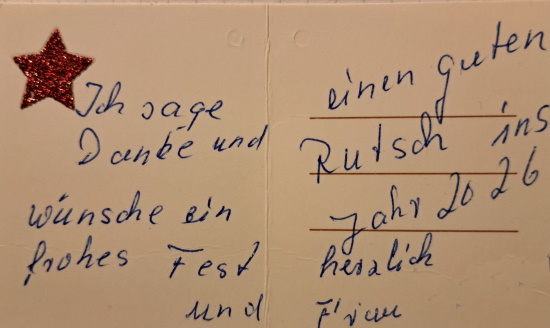 Ich sage
Danke und
wünsche ein
frohes Fest
und
einen guten
Rutsch ins
Jahr 2026
herzlich
Frau